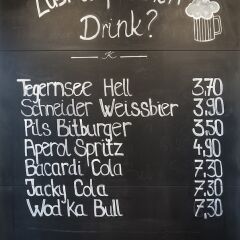 Drink?
K
Tegernsee Hell 3,70
Schneider Weissbier 3,90
Pils Bitburger 3,50
Aperol Spritz 4,90
Bacardi Cola 7,30
Jacky Cola 7,30
Wod'ka Bull 7,30